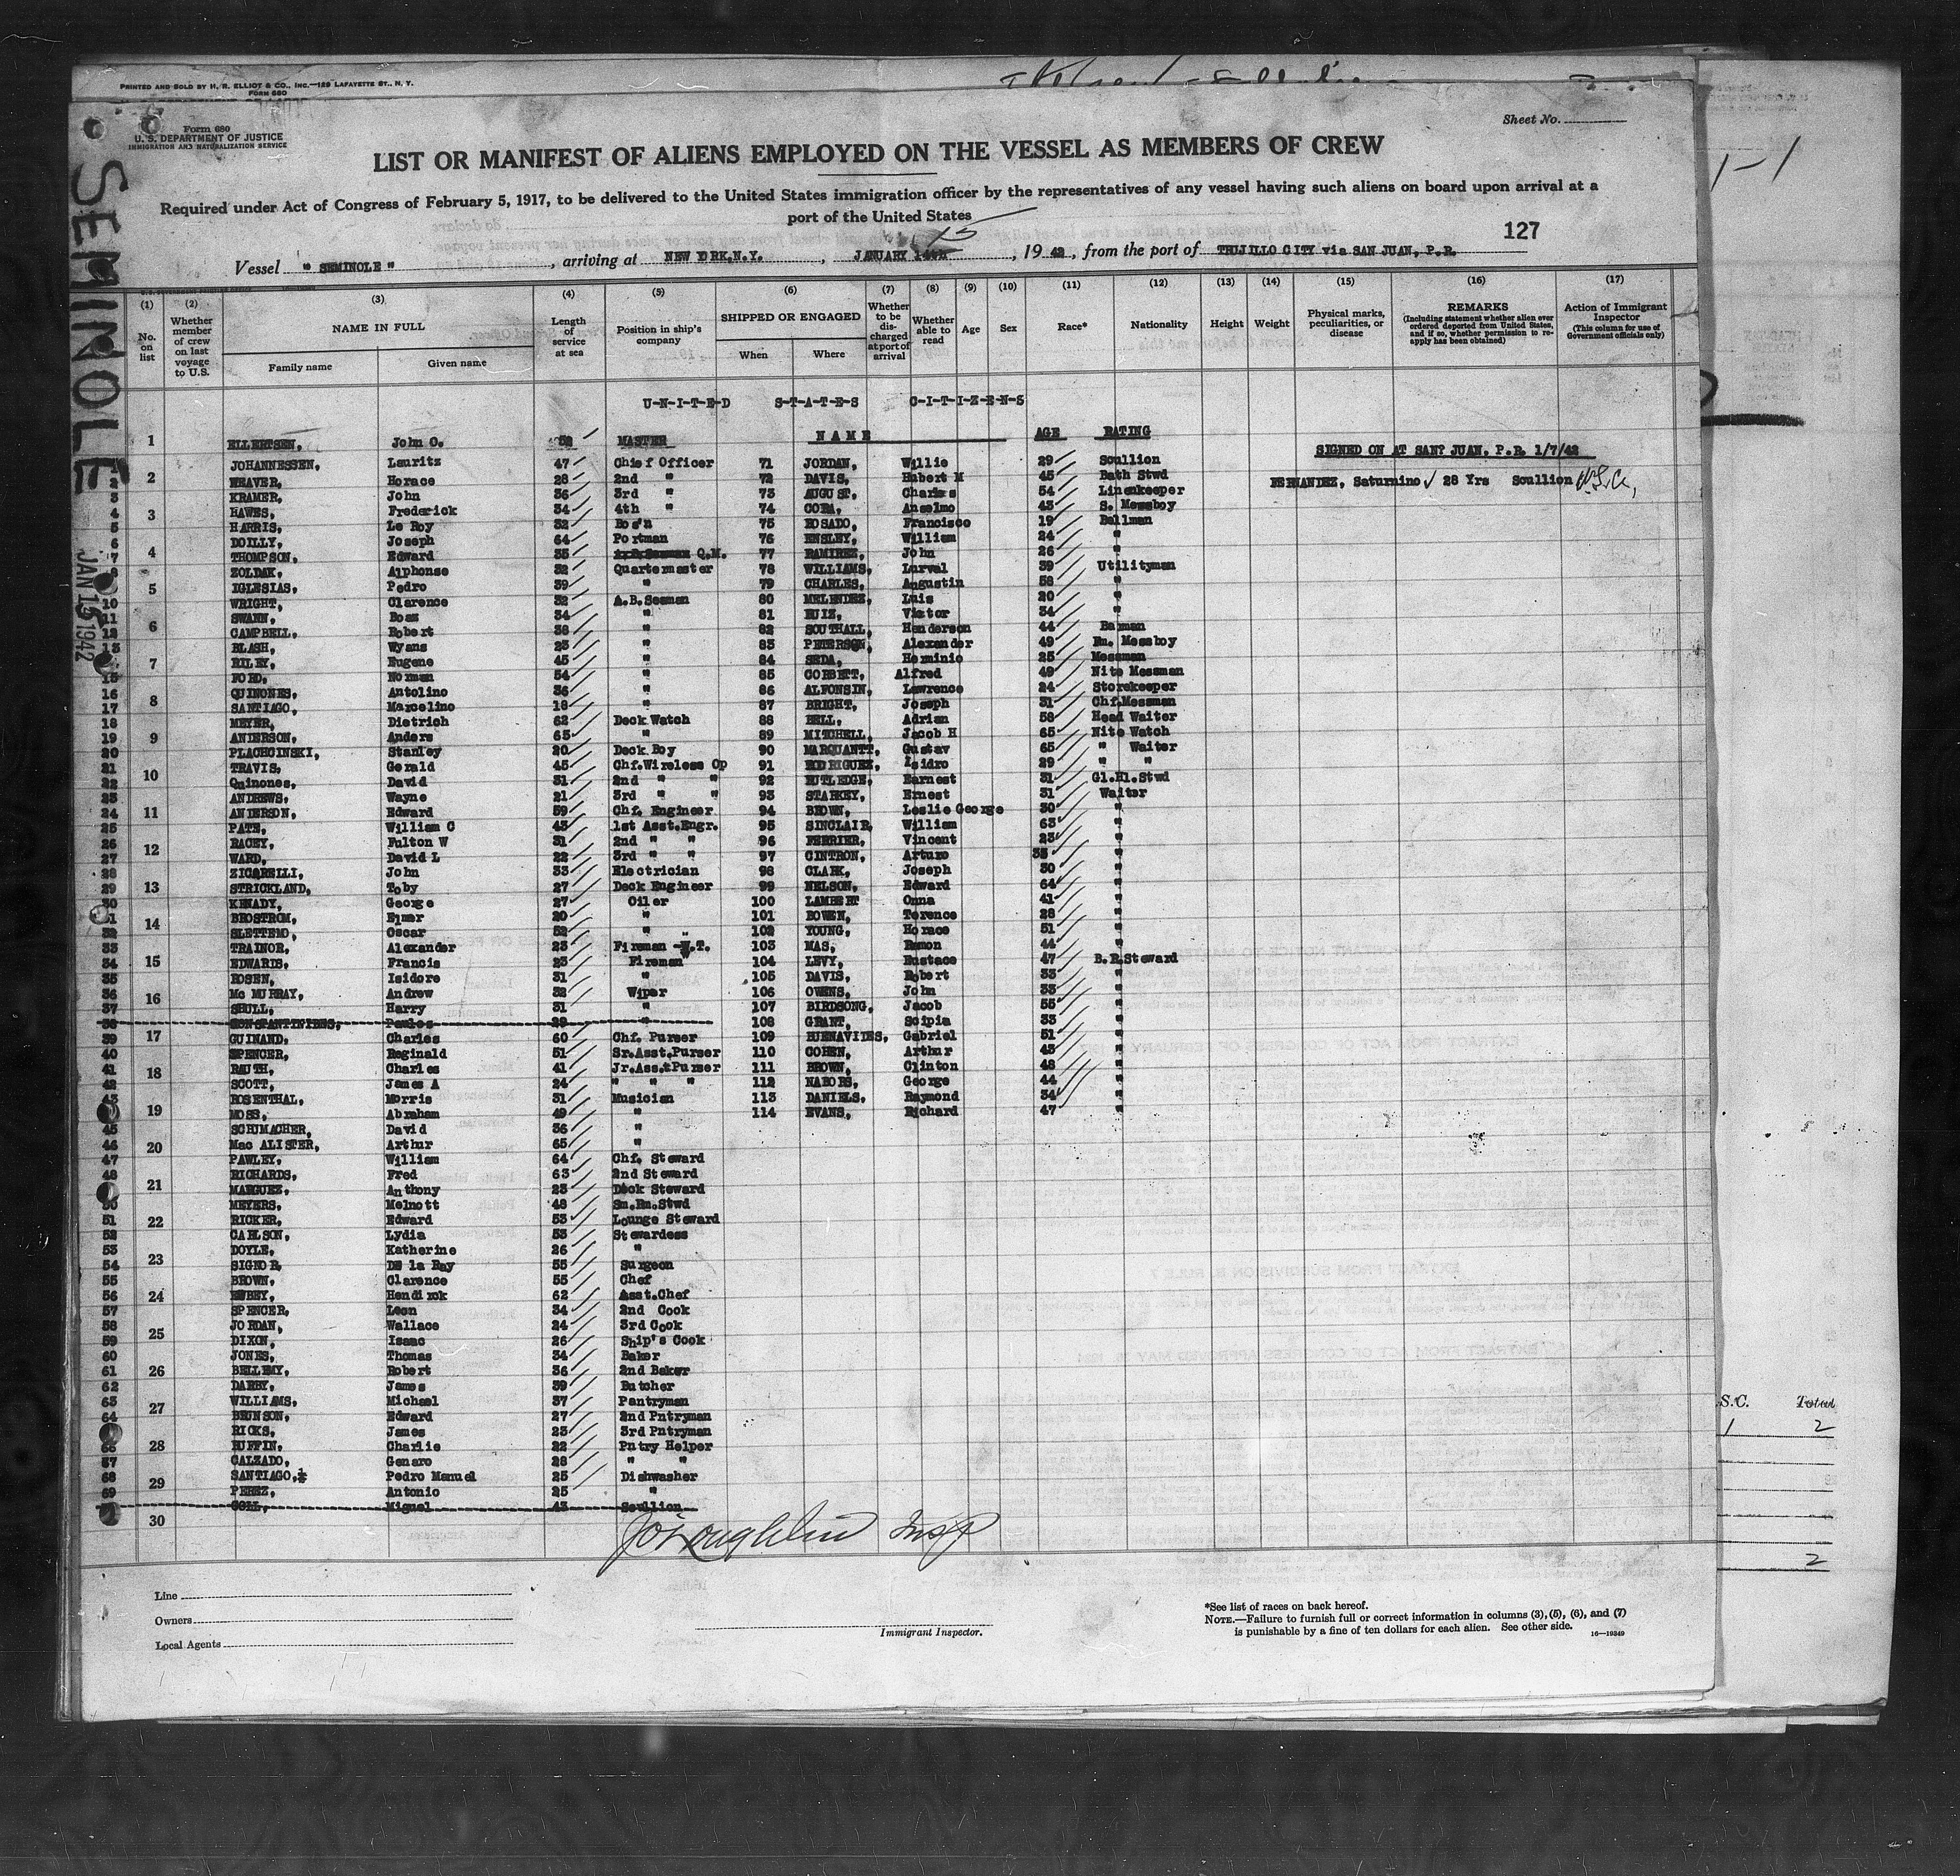 PRINTED AND SOLD BY H. R. ELLIOT & CO., INC.—129 LAFAYETTE ST., N. Y.
FORM 680
Form 680
U. S. DEPARTMENT OF JUSTICE
IMMIGRATION AND NATURALIZATION SERVICE
Sheet No.
LIST OR MANIFEST OF ALIENS EMPLOYED ON THE VESSEL AS MEMBERS OF CREW
Required under Act of Congress of February 5, 1917, to be delivered to the United States immigration officer by the representatives of any vessel having such aliens on board upon arrival at a
port of the United States
15
127
Vessel " SEMINOLE ", arriving at NEW YORK,N.Y., JANUARY 14th, 19 42, from the port of TRUJILLO CITY via SAN JUAN, P.R.
SEMINOLE
JAN 15 1942
(1) (2) (3) (4) (5) (6) (7) (8) (9) (10) (11) (12) (13) (14) (15) (16) (17)
No. on list
Whether member of crew on last voyage to U.S.
NAME IN FULL
Family name
Given name
Length of service at sea
Position in ship's company
SHIPPED OR ENGAGED
When
Where
Whether to be discharged at port of arrival
Whether able to read
Age
Sex
Race*
Nationality
Height
Weight
Physical marks, peculiarities, or disease
REMARKS
(Including statement whether alien ever ordered deported from United States, and if so, whether permission to reapply has been obtained)
Action of Immigrant Inspector
(This column for use of Government officials only)
U-N-I-T-E-D S-T-A-T-E-S C-I-T-I-Z-E-N-S
NAME AGE RATING
1 ELLERTSEN, John O. 52 MASTER
SIGNED ON AT SAN JUAN, P.R. 1/7/42
FERNANDEZ, Saturnino 28 Yrs Scullion U.S.C.
JOHANNESSEN, Lauritz 47 Chief Officer 71 JORDAN, Willie 29 Scullion
2 WEAVER, Horace 28 2nd " 72 DAVIS, Hubert M 45 Bath Stwd
3 KRAMER, John 36 3rd " 73 AUGUST, Charles 54 Linenkeeper
4 HAWES, Frederick 34 4th " 74 CORA, Anselmo 43 S. Messboy
5 HARRIS, Le Roy 32 Bos'n 75 ROSADO, Francisco 19 Bellman
6 DOILLY, Joseph 64 Portman 76 ENSLEY, William 24 "
7 THOMPSON, Edward 35 Q.M. 77 RAMIREZ, John 26 "
8 ZOLDAK, Alphonse 32 Quartermaster 78 WILLIAMS, Lurval 39 Utilityman
IGLESIAS, Pedro 39 " 79 CHARLES, Angustin 58 "
10 WRIGHT, Clarence 32 A.B.Seaman 80 MELENDEZ, Luis 20 "
11 SWANN, Boaz 34 " 81 RUIZ, Victor 34 "
12 CAMPBELL, Robert 38 " 82 SOUTHALL, Henderson 44 Barman
13 BLASH, Wyans 23 " 83 PETERSON, Alexander 49 Rm. Messboy
RILEY, Eugene 45 " 84 SEDA, Herminio 25 Messman
15 FORD, Norman 54 " 85 CORBETT, Alfred 49 Nite Messman
16 QUINONES, Antolino 36 " 86 ALFONSIN, Lawrence 24 Storekeeper
17 SANTIAGO, Marcelino 18 " 87 BRIGHT, Joseph 31 Chf.Messman
18 MEYER, Dietrich 62 Deck Watch 88 BELL, Adrian 58 Head Waiter
19 ANDERSON, Anders 65 " 89 MITCHELL, Jacob H 65 Nite Watch
20 PLACHCINSKI, Stanley 20 Deck Boy 90 MARQUANTT, Gustav 65 " Waiter
21 TRAVIS, Gerald 45 Chf.Wireless Op 91 RODRIGUEZ, Isidro 29 " "
22 Quinones, David 31 2nd " " 92 RUTLEDGE, Earnest 31 Gl.Hl.Stwd
23 ANDREWS, Wayne 21 3rd " " 93 STARKEY, Ernest 31 Waiter
24 ANDERSON, Edward 59 Chf. Engineer 94 BROWN, Leslie George 30 "
25 PATE, William C 43 1st Asst.Engr. 95 SINCLAIR, William 63 "
26 RACEY, Fulton W 31 2nd " " 96 FERRIER, Vincent 23 "
27 WARD, David L 22 3rd " " 97 CINTRON, Arturo 35 "
28 ZICARELLI, John 33 Electrician 98 CLARK, Joseph 30 "
29 STRICKLAND, Toby 27 Deck Engineer 99 NELSON, Edward 64 "
30 KENADY, George 27 Oiler 100 LAMBERT Onna 41 "
31 BROSTROM, Elmer 20 " 101 BOWEN, Terence 28 "
32 SLETTEMO, Oscar 52 " 102 YOUNG, Horace 51 "
33 TRAINOR, Alexander 23 Fireman W.T. 103 MAS, Ramon 44 "
34 EDWARDS, Francis 23 Fireman 104 LEVY, Eustace 47 B.R.Steward
35 ROSEN, Isidore 31 " 105 DAVIS, Robert 33 "
36 Mc MURRAY, Andrew 32 Wiper 106 OWENS, John 33 "
37 SHULL, Harry 31 " 107 BIRDSONG, Jacob 55 "
38 Pavlos 29 " 108 GRANT, Scipia 33 "
39 GUINAND, Charles 60 Chf. Purser 109 BUENAVIDES, Gabriel 51 "
40 SPENCER, Reginald 51 Sr.Asst.Purser 110 COHEN, Arthur 43 "
41 RAUTH, Charles 41 Jr.Asst.Purser 111 BROWN, Clinton 48 "
42 SCOTT, James A 24 " " " 112 NABORS, George 44 "
43 ROSENTHAL, Morris 31 Musician 113 DANIELS, Raymond 34 "
MOSS, Abraham 49 " 114 EVANS, Richard 47 "
45 SCHUMACHER, David 36 "
46 Mac ALISTER, Arthur 65 "
47 PAWLEY, William 64 Chf. Steward
48 RICHARDS, Fred 63 2nd Steward
MARGUEZ, Anthony 23 Deck Steward
50 MEYERS, Melnott 48 Sm.Rm.Stwd
51 RICKER, Edward 53 Lounge Steward
52 CARLSON, Lydia 53 Stewardess
53 DOYLE, Katherine 26 "
54 SIGNOR, De la Ray 55 Surgeon
55 BROWN, Clarence 55 Chef
56 Hendirok 62 Asst.Chef
57 SPENCER, Leon 34 2nd Cook
58 JORDAN, Wallace 24 3rd Cook
59 DIXON, Isaac 26 Ship's Cook
60 JONES, Thomas 34 Baker
61 BELLEMY, Robert 36 2nd Baker
62 DARBY, James 39 Butcher
63 WILLIAMS, Michael 37 Pantryman
64 BRUNSON, Edward 27 2nd Pntryman
RICKS, James 23 3rd Pntryman
66 RUFFIN, Charlie 22 Pntry Helper
67 CALZADO, Genaro 28 " "
68 SANTIAGO, Pedro Manuel 25 Dishwasher
69 PEREZ, Antonio 25 "
COLL, Miguel 43 Scullion
1 2 3 4 5 6 7 8 9 10 11 12 13 14 15 16 17 18 19 20 21 22 23 24 25 26 27 28 29 30
J O'Loughlin Insp
Line
Owners
Local Agents
Immigrant Inspector.
*See list of races on back hereof.
NOTE.—Failure to furnish full or correct information in columns (3), (5), (6), and (7)
is punishable by a fine of ten dollars for each alien. See other side. 16—19349
1-1
S.C. Total
1 2
2